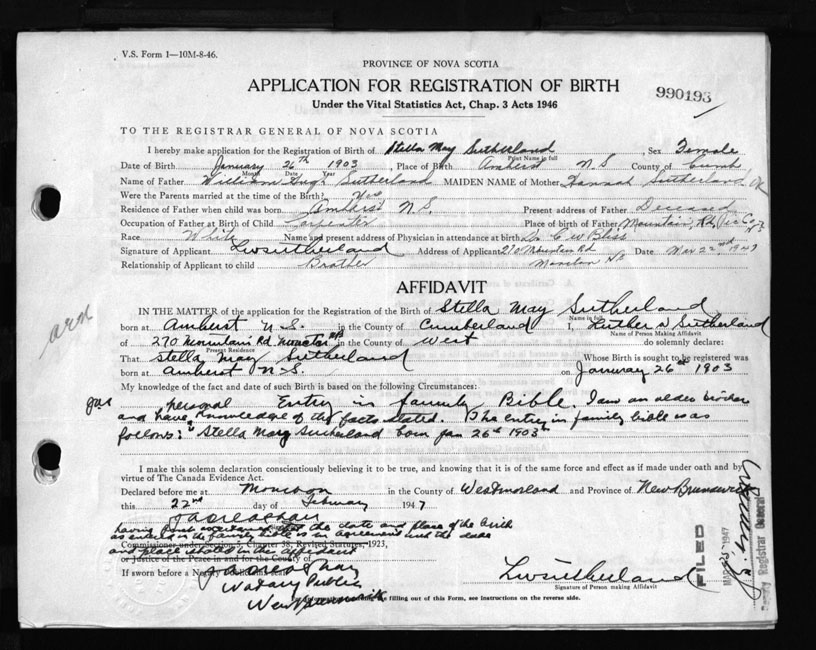 V.S. Form 1—10M-8-46.
PROVINCE OF NOVA SCOTIA
APPLICATION FOR REGISTRATION OF BIRTH
990193
Under the Vital Statistics Act, Chap. 3 Acts 1946
TO THE REGISTRAR GENERAL OF NOVA SCOTIA
I hereby make application for the Registration of Birth of Stella May Sutherland, Sex Female
Print Name in full
Date of Birth January 26th 1903, Place of Birth Amherst N S County of Cumb
Month Date Year
Name of Father William Hugh Sutherland MAIDEN NAME of Mother Hannah Sutherland
Were the Parents married at the time of Birth? Yes
Residence of Father when child was born Amherst N.S. Present address of Father Deceased
Occupation of Father at Birth of Child Carpenter Place of birth of Father Mountain Rd, Pic Co
Race White Name and present address of Physician in attendance at birth Dr C W Bliss
Signature of Applicant LWSutherland Address of Applicant 270 Mountain Rd Date 22nd 1947
Relationship of Applicant to child Brother Moncton NB
AFFIDAVIT
IN THE MATTER of the application for the Registration of Birth of Stella May Sutherland
Name in full
born at Amherst N.S. in the County of Cumberland I, Luther W Sutherland
Name of Person Making Affidavit
of 270 Mountain Rd Moncton NB in the County of West do solemnly declare:
Present Residence
That Stella May Sutherland Whose Birth is sought to be registered was
born at Amherst N.S. on January 26th 1903
My knowledge of the fact and date of such Birth is based on the following Circumstances:
personal Entry in family Bible. I am an older brother
and have knowledge of the facts stated. The entry in family bible is as
follows: "Stella May Sutherland born Jan 26th 1903"
I make this solemn declaration conscientiously believing it to be true, and knowing that it is of the same force and effect as if made under oath and by
virtue of The Canada Evidence Act.
Declared before me at Moncton in the County of Westmorland and Province of New Brunswick
this 22nd day of February 1947
having first ascertained that the date and place of the birth
as entered in the family bible is in agreement with the date
Commissioner under Section Chapter 38, Revised Statutes, 1923,
and place stated in the affidavit
or Justice of the Peace in and for the County of
If sworn before a Notary Public
Notary Public
New Brunswick
LWSutherland
Signature of Person making Affidavit
filling out of this Form, see instructions on the reverse side.
FILED
1947
Registrar General